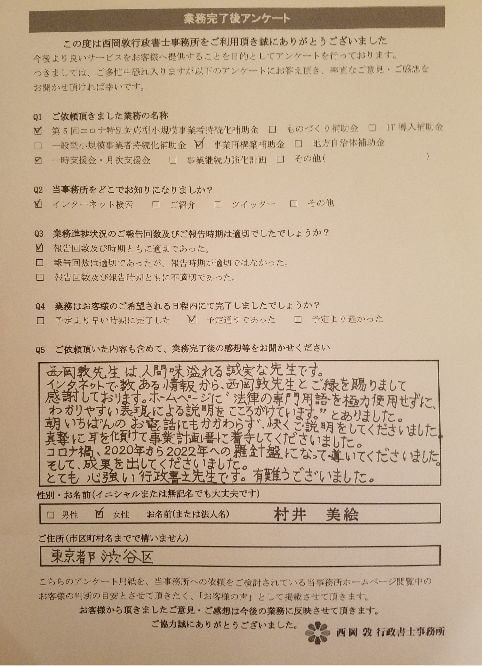 業務完了後アンケート
この度は西岡敦行政書士事務所をご利用頂き誠にありがとうございました
今後より良いサービスをお客様へ提供することを目的としてアンケートを行っております。
つきましては、ご多忙中恐れ入りますが以下のアンケートにお答え頂き、率直なご意見・ご感想を
お聞かせ頂ければ幸いです。
Q1 ご依頼頂きました業務の名称
☑ 第5回コロナ特別対応型小規模事業者持続化補助金 □ ものづくり補助金 □ IT導入補助金
□ 一般型小規模事業者持続化補助金 ☑ 事業再構築補助金 □ 地方自治体補助金
☑ 一時支援金・月次支援金 □ 事業継続力強化計画 □ その他( )
Q2 当事務所をどこでお知りになりましたか?
☑ インターネット検索 □ ご紹介 □ ツイッター □ その他
Q3 業務進捗状況のご報告回数及びご報告時期は適切でしたでしょうか?
☑ 報告回数及び時期ともに適切であった。
□ 報告回数は適切であったが、報告時期が適切ではなかった。
□ 報告回数及び報告時期ともに不適切であった。
Q4 業務はお客様のご希望される日程内にて完了しましたでしょうか?
□ 予定より早い時期に完了した ☑ 予定通りであった □ 予定より遅かった
Q5 ご依頼頂いた内容も含めて、業務完了後の感想等をお聞かせください
西岡敦先生は人間味溢れる誠実な先生です。
インタネットで数ある情報から、西岡敦先生とご縁を賜りまして
感謝しております。ホームページに"法律の専門用語を極力使用せずに、
わかりやすい表現による説明をこころがけています。"とありました。
朝いちばんのお電話にもかかわらず、快くご説明をしてくださいました。
真摯に耳を傾けて事業計画書に着手してくださいました。
コロナ禍、2020年から2022年への羅針盤になって導いてくださいました。
そして、成果を出してくださいました。
とても心強い行政書士先生です。有難うございました。
性別・お名前(イニシャルまたは無記名でも大丈夫です)
□ 男性 ☑ 女性 お名前(または法人名) 村井 美絵
ご住所(市区町村名までで構いません)
東京都渋谷区
こちらのアンケート用紙を、当事務所への依頼をご検討されている当事務所ホームページ閲覧中の
お客様の判断の目安とさせて頂きたく、「お客様の声」として掲載させて頂きます。
お客様から頂きましたご意見・ご感想は今後の業務に反映させて頂きます。
ご協力誠にありがとうございました。
西岡敦行政書士事務所